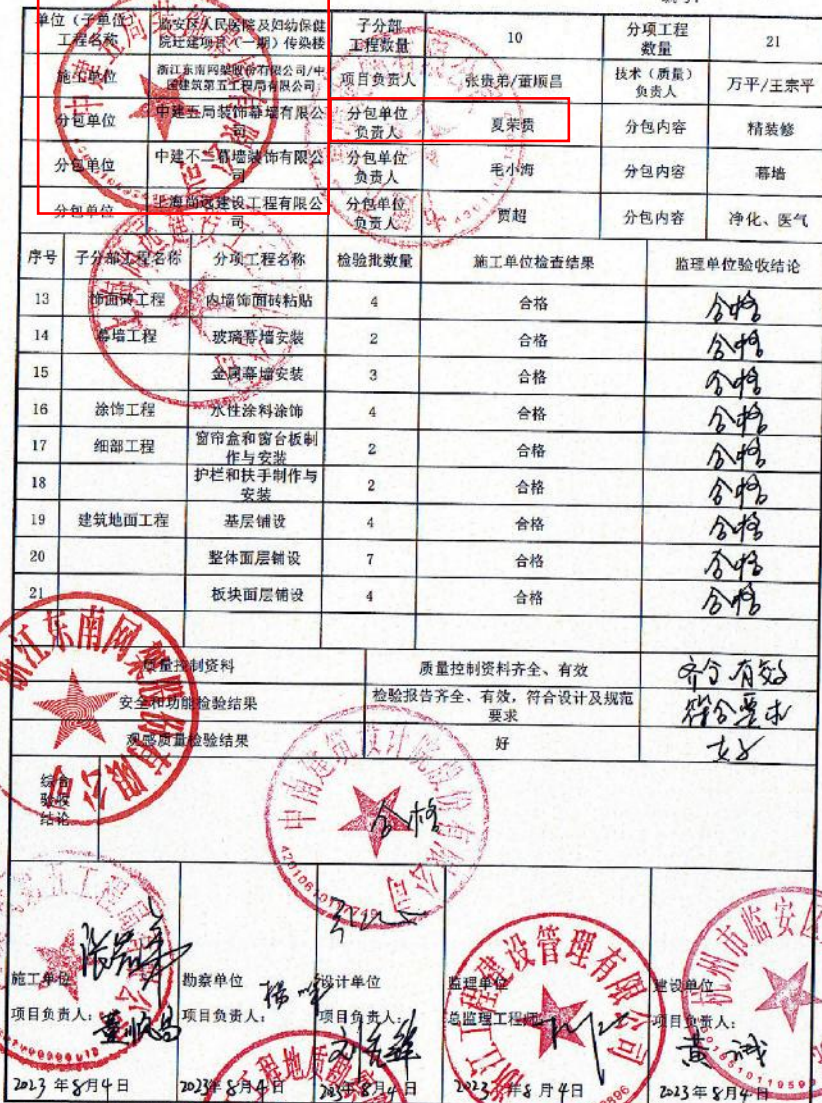 单位（子单位）工程名称 临安区人民医院及妇幼保健院迁建项目（一期）传染楼 子分部工程数量 10 分项工程数量 21
施工单位 浙江东南网架股份有限公司/中国建筑第五工程局有限公司 项目负责人 张贵弟/董顺昌 技术（质量）负责人 万平/王宗平
分包单位 中建五局装饰幕墙有限公司 分包单位负责人 夏荣贵 分包内容 精装修
分包单位 中建不二幕墙装饰有限公司 分包单位负责人 毛小海 分包内容 幕墙
分包单位 上海尚远建设工程有限公司 分包单位负责人 贾超 分包内容 净化、医气
序号 子分部工程名称 分项工程名称 检验批数量 施工单位检查结果 监理单位验收结论
13 饰面砖工程 内墙饰面砖粘贴 4 合格 合格
14 幕墙工程 玻璃幕墙安装 2 合格 合格
15 金属幕墙安装 3 合格 合格
16 涂饰工程 水性涂料涂饰 4 合格 合格
17 细部工程 窗帘盒和窗台板制作与安装 2 合格 合格
18 护栏和扶手制作与安装 2 合格 合格
19 建筑地面工程 基层铺设 4 合格 合格
20 整体面层铺设 7 合格 合格
21 板块面层铺设 4 合格 合格
质量控制资料 质量控制资料齐全、有效 齐全 有效
安全和功能检验结果 检验报告齐全、有效，符合设计及规范要求 符合要求
观感质量检验结果 好 好
综合验收结论 合格
浙江东南网架股份有限公司
中南建筑设计院股份有限公司
施工单位 勘察单位 设计单位 监理单位 建设单位
项目负责人： 董顺昌 项目负责人： 项目负责人： 总监理工程师 项目负责人： 黄诚
2023年8月4日 2023年8月4日 2023年8月4日 2023年8月4日 2023年8月4日
浙江工程建设管理有限公司
杭州市临安区
工程地质